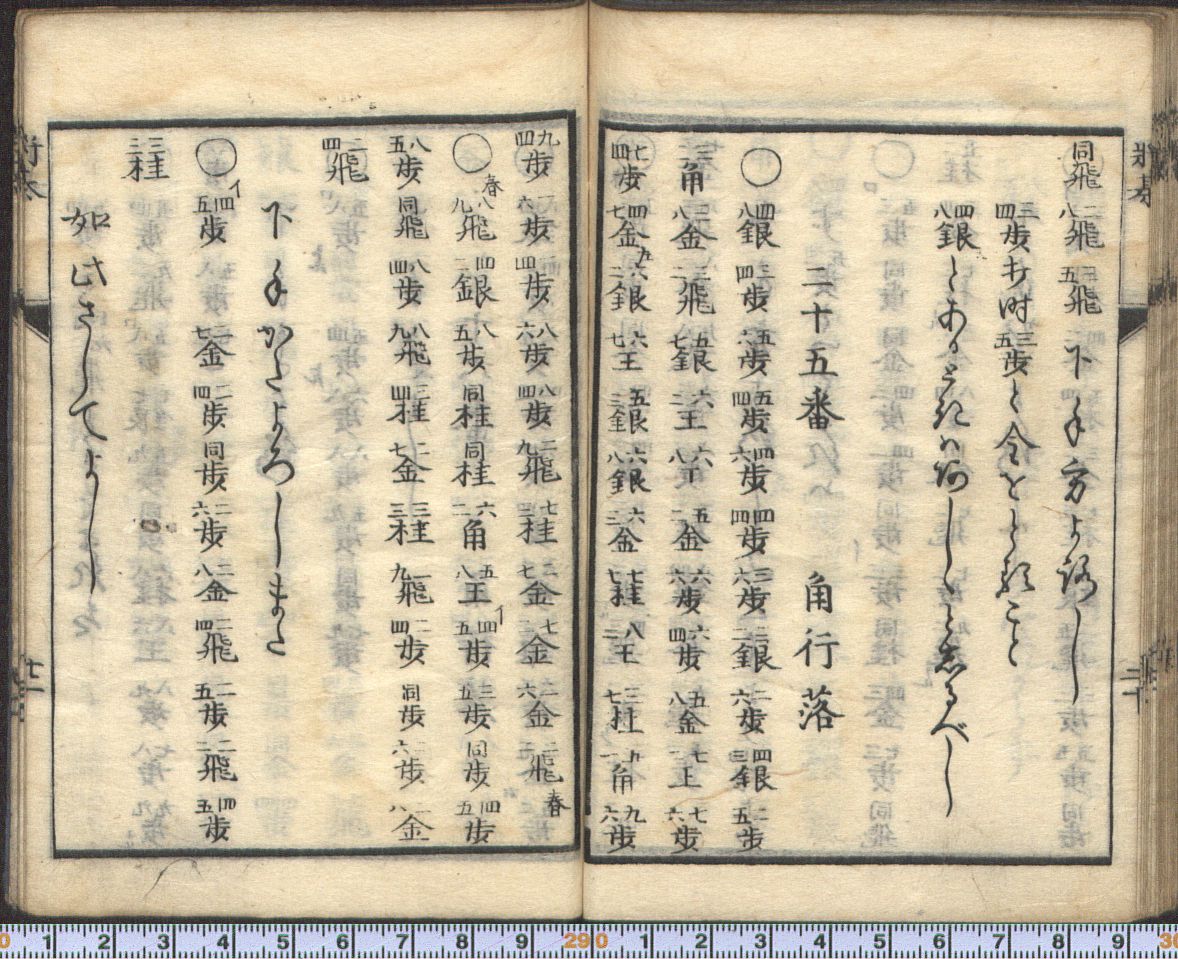 同飛 二八飛 三五飛 下手方よろしし
三四歩打時三五歩と金をとること
四八銀とあるときハあしゝと知るべし
二十五番 角行落
○ 四八銀 三四歩 五六歩 五四歩 四六歩 四四歩 三六歩 三二銀 二六歩 四三銀 二五歩
三三角 三八金 三二飛 五七銀 六二王 六八王 五二金 六六歩 六四歩 五八金 七二王 七六歩
七四歩 四七金 六二銀 六七王 五三銀 六八銀 六三金 七七桂 八二王 三七桂 角 九六歩
九四歩 一六歩 一四歩 八六歩 八四歩 二九飛 七三桂 二七金 七二金 二六金 二二飛 春
○ 春 八九飛 四二銀 八五歩 同桂 同桂 六二角 五八王 イ 四五歩 三五歩 同歩 四五歩
八五歩 同飛 八四歩 八九飛 三四桂 二七金 三三桂 一九飛 二四歩 同歩 二六歩 二八金
二四飛
下手かたよろしまた
○ イ 四五歩 二七金 二四歩 同歩 二六歩 二八金 二四飛 二五歩 二二飛 四五歩
三三桂
如此さしてよし